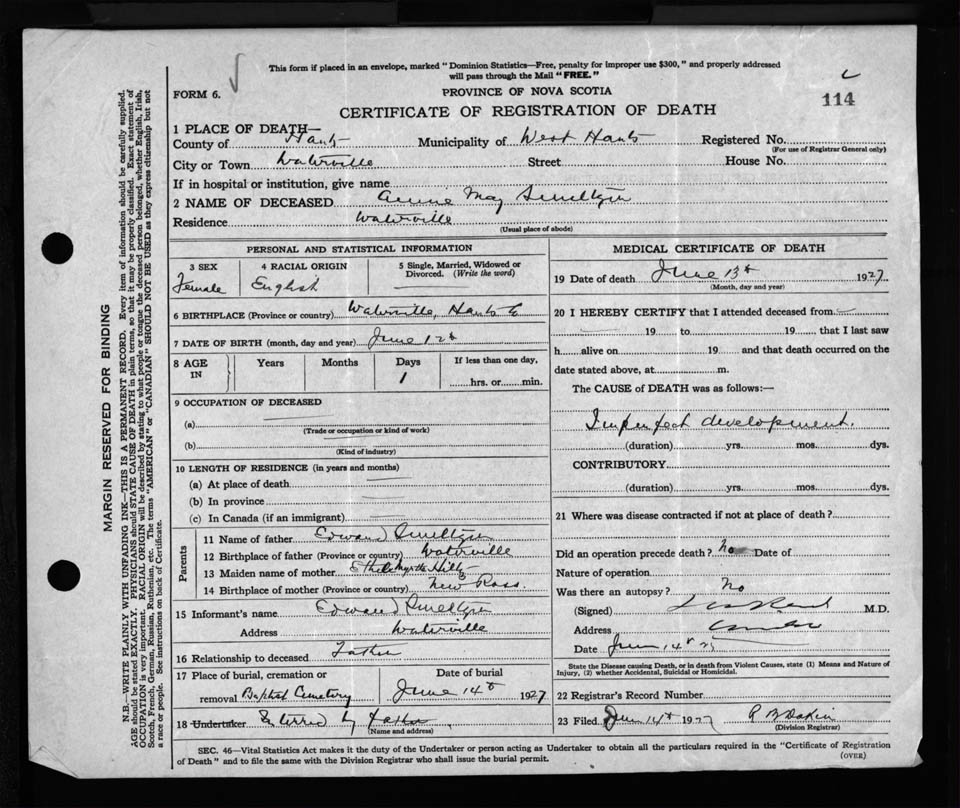 This form if placed in an envelope, marked "Dominion Statistics—Free, penalty for improper use $300," and properly addressed
will pass through the Mail "FREE."
FORM 6.
PROVINCE OF NOVA SCOTIA
114
CERTIFICATE OF REGISTRATION OF DEATH
1 PLACE OF DEATH—
County of Hants Municipality of West Hants Registered No.
(For use of Registrar General only)
City or Town Waterville Street House No.
If in hospital or institution, give name
2 NAME OF DECEASED Annie May Smeltzer
Residence Waterville
(Usual place of abode)
PERSONAL AND STATISTICAL INFORMATION
3 SEX 4 RACIAL ORIGIN 5 Single, Married, Widowed or
Divorced. (Write the word)
Female English
6 BIRTHPLACE (Province or country) Waterville, Hants Co
7 DATE OF BIRTH (month, day and year) June 12th
8 AGE Years Months Days If less than one day,
IN 1 hrs. or min.
9 OCCUPATION OF DECEASED
(a)
(Trade or occupation or kind of work)
(b)
(Kind of industry)
10 LENGTH OF RESIDENCE (in years and months)
(a) At place of death
(b) In province
(c) In Canada (if an immigrant)
Parents
11 Name of father Edward Smeltzer
12 Birthplace of father (Province or country) Waterville
13 Maiden name of mother Ethel Myrtle Hiltz
14 Birthplace of mother (Province or country) New Ross.
15 Informant's name Edward Smeltzer
Address Waterville
16 Relationship to deceased Father
17 Place of burial, cremation or Date of burial
removal Baptist Cemetery June 14th 1927
18 Undertaker Interred by father
(Name and address)
MEDICAL CERTIFICATE OF DEATH
19 Date of death June 13th 1927
(Month, day and year)
20 I HEREBY CERTIFY that I attended deceased from
19 to 19 , that I last saw
h alive on 19 and that death occurred on the
date stated above, at m.
The CAUSE of DEATH was as follows:—
Imperfect development.
(duration) yrs. mos. dys.
CONTRIBUTORY
(duration) yrs. mos. dys.
21 Where was disease contracted if not at place of death?
Did an operation precede death? No Date of
Nature of operation
Was there an autopsy? No
(Signed) M.D.
Address
Date June 14th 27
State the Disease causing Death, or in death from Violent Causes, state (1) Means and Nature of
Injury, (2) whether Accidental, Suicidal or Homicidal.
22 Registrar's Record Number
23 Filed June 14th 1927 R B Dakin
(Division Registrar)
SEC. 46—Vital Statistics Act makes it the duty of the Undertaker or person acting as Undertaker to obtain all the particulars required in the "Certificate of Registration
of Death" and to file the same with the Division Registrar who shall issue the burial permit.
(OVER)
MARGIN RESERVED FOR BINDING
N.B.—WRITE PLAINLY WITH UNFADING INK—THIS IS A PERMANENT RECORD. Every item of information should be carefully supplied.
AGE should be stated EXACTLY. PHYSICIANS should STATE CAUSE OF DEATH in plain terms, so that it may be properly classified. Exact statement of
OCCUPATION is very important. RACIAL ORIGIN will be described by stating to what people or tongue the deceased person belonged, whether English, Irish,
Scotch, French, German, Russian, Ruthenian, etc. The terms "AMERICAN" or "CANADIAN" SHOULD NOT BE USED as they express citizenship but not
a race or people. See instructions on back of Certificate.